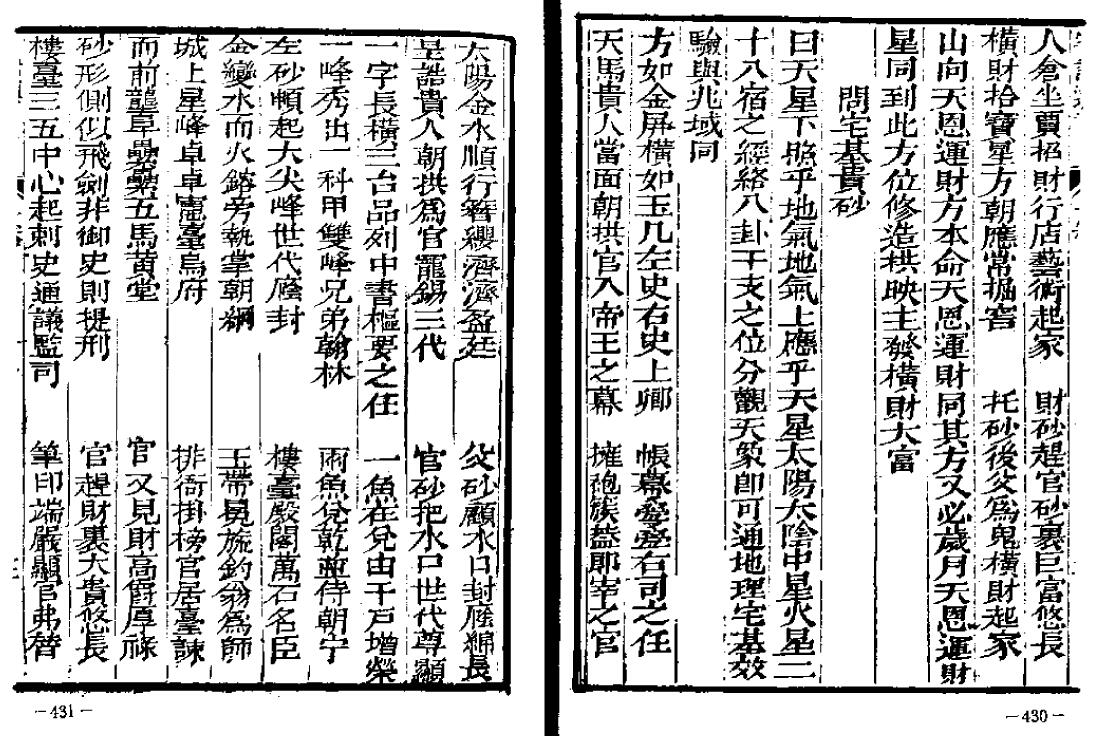 人倉坐賈招財行店藝術起家　財砂趕官砂裹巨富悠長
橫財拾寶星方朝應常掘窖　托砂後父為鬼橫財起家
山向天恩運財方本命天恩運財同其方又必歲月天恩運財
星同到此方位修造拱映主發橫財大富
問宅基貴砂
曰天星下照乎地氣地氣上應乎天星太陽太陰中星火星二
十八宿之經絡八卦干支之位分觀天象即可通地理宅基效
驗與兆域同
方如金屏橫如玉几左史右史上卿　帳幕疊疊右司之任
天馬貴人當面朝拱官入帝王之幕　擁袍簇蓋即宰之官
—430—
太陽金水順行簪纓濟濟盈廷　父砂顧水口封廕綿長
呈誥貴人朝拱為官寵錫三代　官砂把水口世代尊顯
一字長橫三台品列中書樞要之任　一魚在兌由干戶增榮
一峰秀出一科甲雙峰兄弟翰林　雨魚兌乾並侍朝宁
左砂頓起大尖峰世代廕封　樓臺殿閣萬石名臣
金變水而火鎔旁執掌朝綱　玉帶晃旒釣翁為師
城上星峰卓卓憲臺烏府　排衙掛榜官居臺諫
而前壟阜纍纍五馬黄堂　官又見財高爵厚祿
砂形側似飛劍非御史則提刑　官趕財裹大貴悠長
樓臺三五中心起刺史通議監司　筆印端嚴顯官弗替
—431—